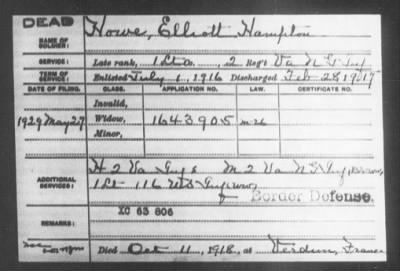 DEAD
NAME OF SOLDIER: Howe, Elliott Hampton
SERVICE: Late rank, 1 Lt Co. , 2 Reg't Va N G Inf
TERM OF SERVICE: Enlisted July 1, 1916 Discharged Feb 28, 1917
DATE OF FILING. CLASS. APPLICATION NO. LAW. CERTIFICATE NO.
Invalid,
1929 May 27 Widow, 1643905 m-26
Minor,
ADDITIONAL SERVICES: H 2 Va Inf & M 2 Va N G Inf,
1 Lt 116 US Inf
Border Defense.
XC 63 806
REMARKS:
Died Oct 11, 1918, at Verdun, France